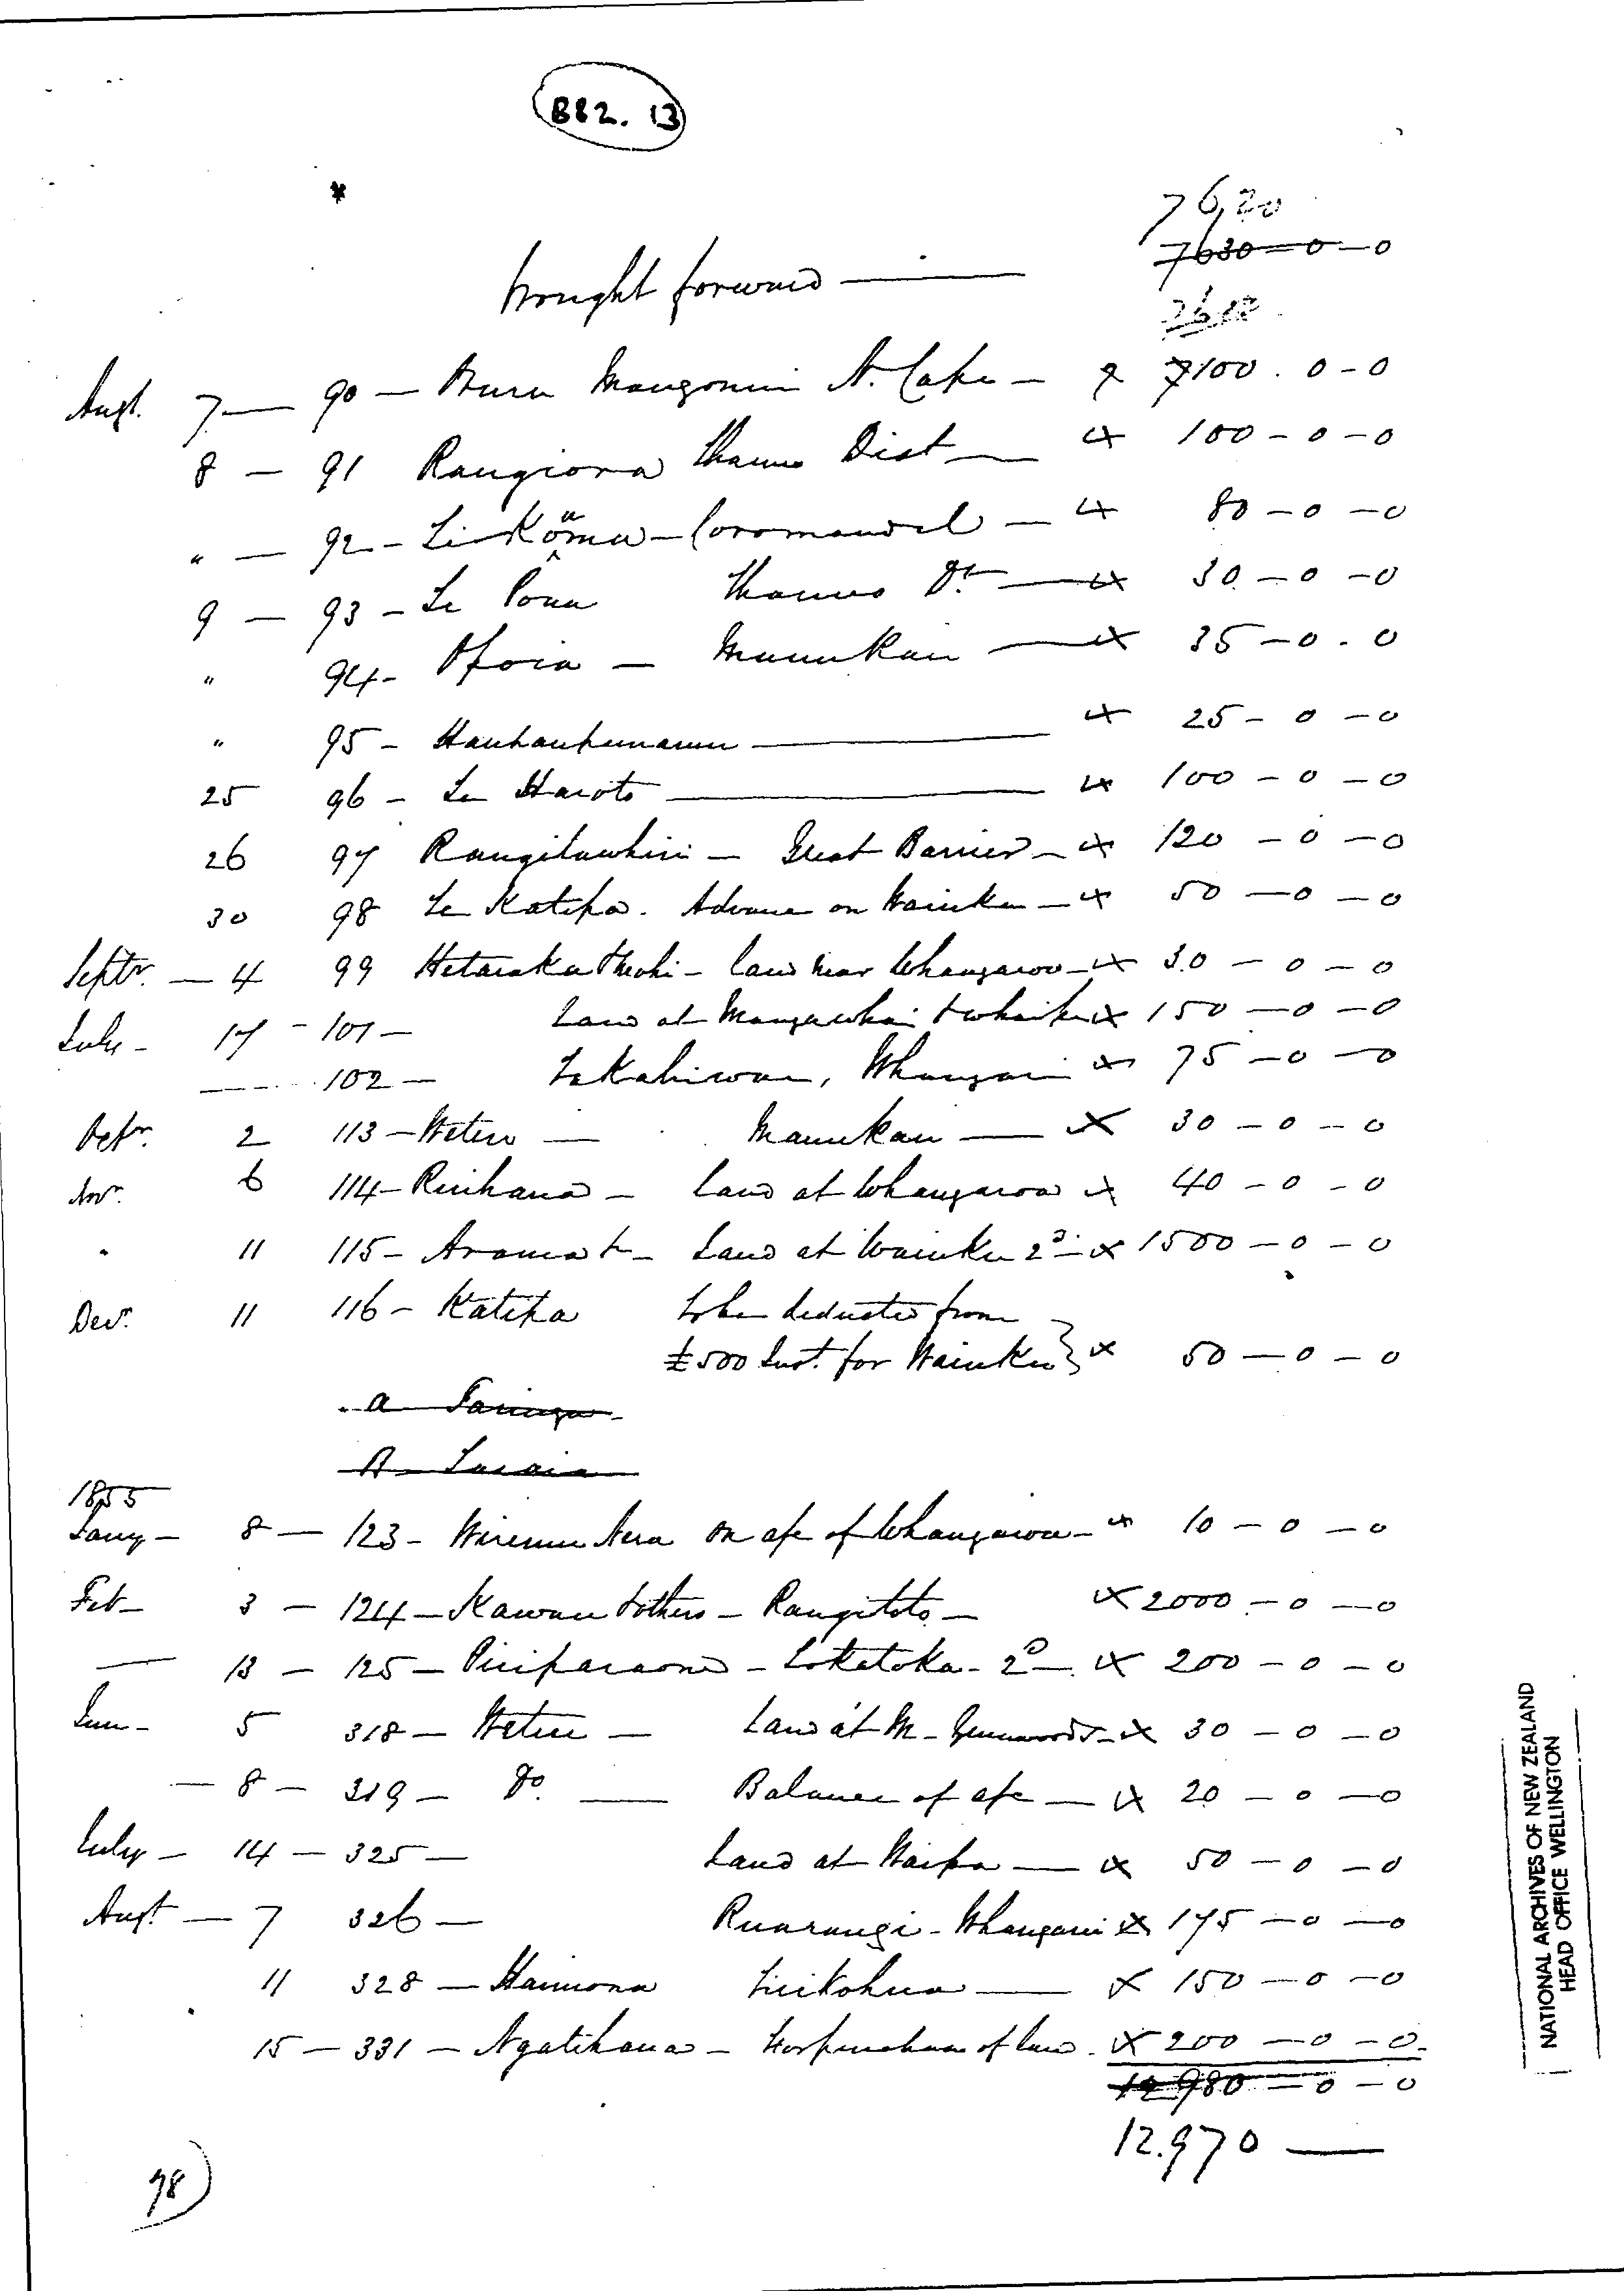 B82. 13
76,20
7630-0-0
brought forward
Augt. 7 — 90 — Mangonui N. Cape — 100.0-0
8 — 91 Rangiora Thames Dist — x 100-0-0
" — 92 - Coromandel — x 80-0-0
9 — 93 - Te Thames Dt. — x 30-0-0
" 94 - Manukau — x 35-0.0
" 95 - x 25-0-0
25 96 - Te Haroto — x 100-0-0
26 97 Rangitawhiri — Great Barrier - x 120-0-0
30 98 Te Katipa. Advance on Waiuku — x 50-0-0
Septr. — 4 99 Hetaraka - land near Whangaroa - x 30-0-0
July - 17 - 101 - Land at Mangawhai x 150-0-0
102 — Takahiwai, x 75-0-0
Octr. 2 113 - Wetere — Manukau — x 30-0-0
Novr. 6 114 - Land at Whangaroa x 40-0-0
" 11 115 - Land at Waiuku 2d - x 1500-0-0
Decr. 11 116 - Katipa to be deducted from
£500 Inst. for Waiuku } x 50-0-0
1855
Jany - 8 — 123 - Wiremu Nera on a/c of Whangaroa - x 10-0-0
Feb - 3 — 124 - & others - Rangitoto - x 2000-0-0
— 13 — 125 - - Tokatoka - 2d - x 200-0-0
June - 5 318 - Wetere — Land at - x 30-0-0
— 8 — 319 - Do. — Balance of a/c — x 20-0-0
July - 14 — 325 — Land at Waipa — x 50-0-0
Augt — 7 326 — Ruarangi - x 175-0-0
11 328 — Haimona — x 150-0-0
15 — 331 — - x 200-0-0
12980-0-0
12.970 —
98)
NATIONAL ARCHIVES OF NEW ZEALAND
HEAD OFFICE WELLINGTON